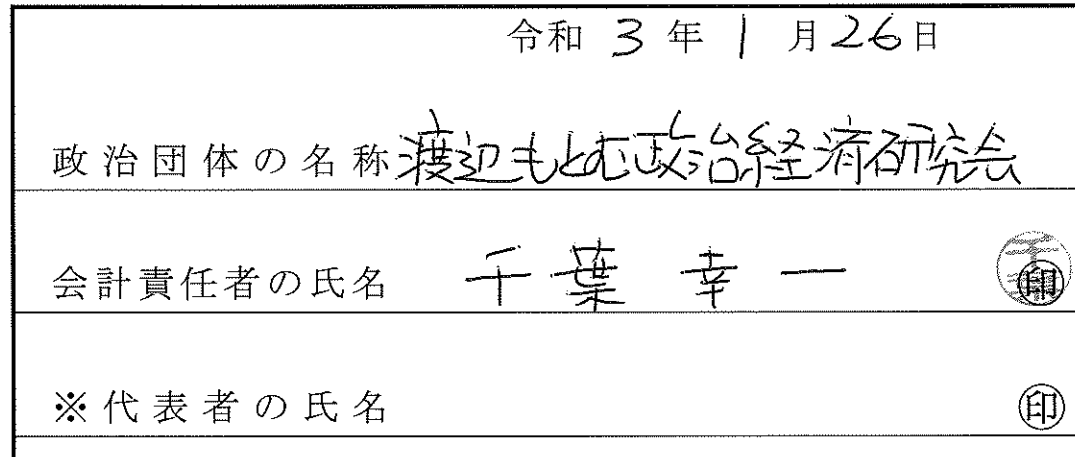 令和 3 年 1 月 26 日
政治団体の名称 渡辺もとむ政治経済研究会
会計責任者の氏名 千葉 幸一 千葉 ㊞
※代表者の氏名 ㊞